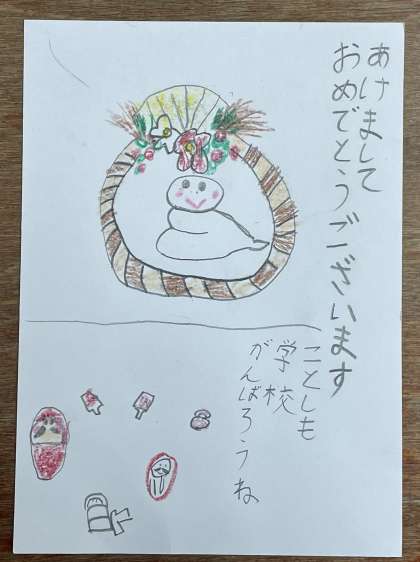 あけまして
おめでとうございます
ことしも
学校
がんばろうね